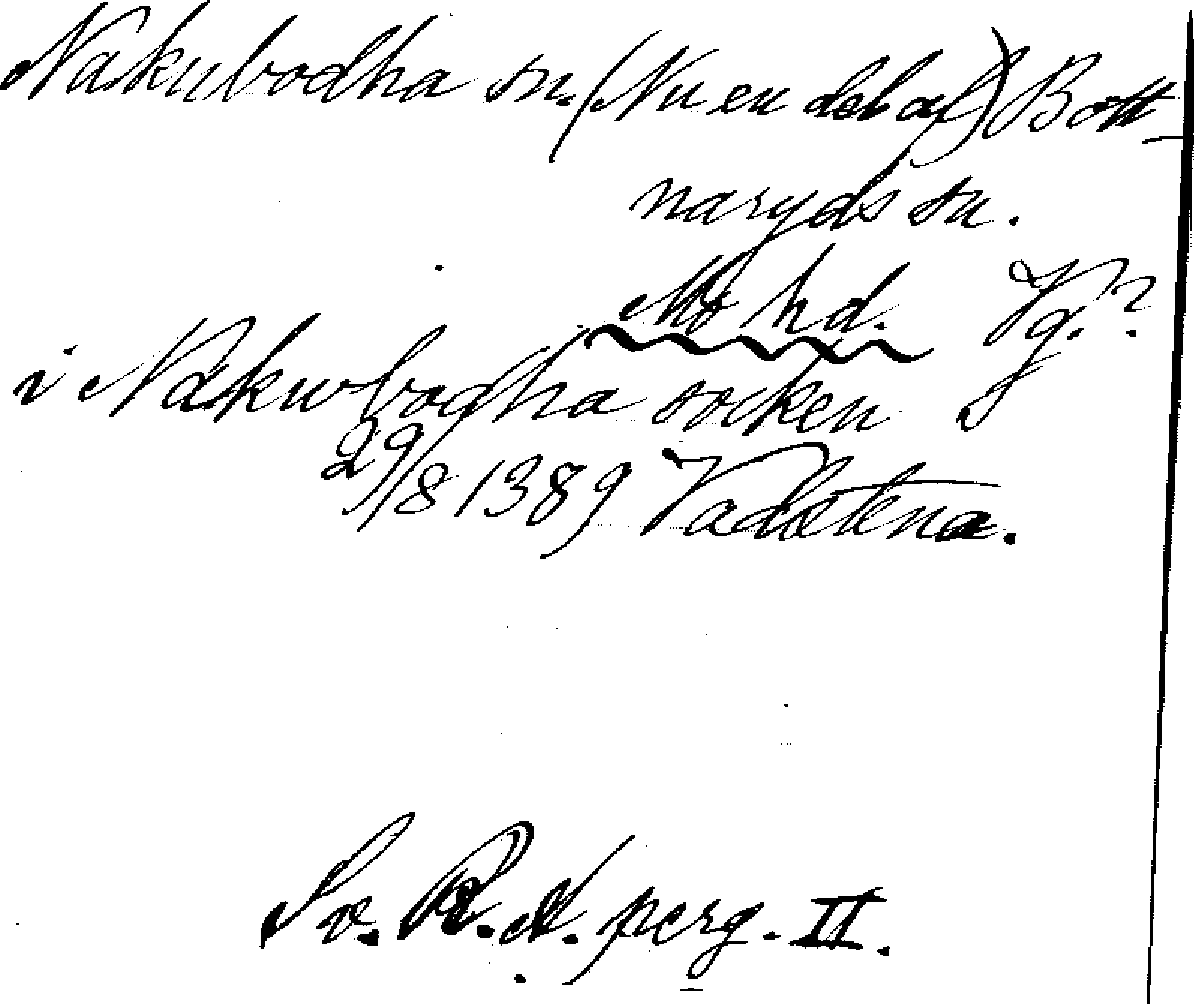 Nakubodha sn. (Nu en del af) Bott-
naryds sn.
Mo hd. Vg.?
i Nakwbodha socken
29/8 1389 Vadstena.
Sv. R. A. perg. II.